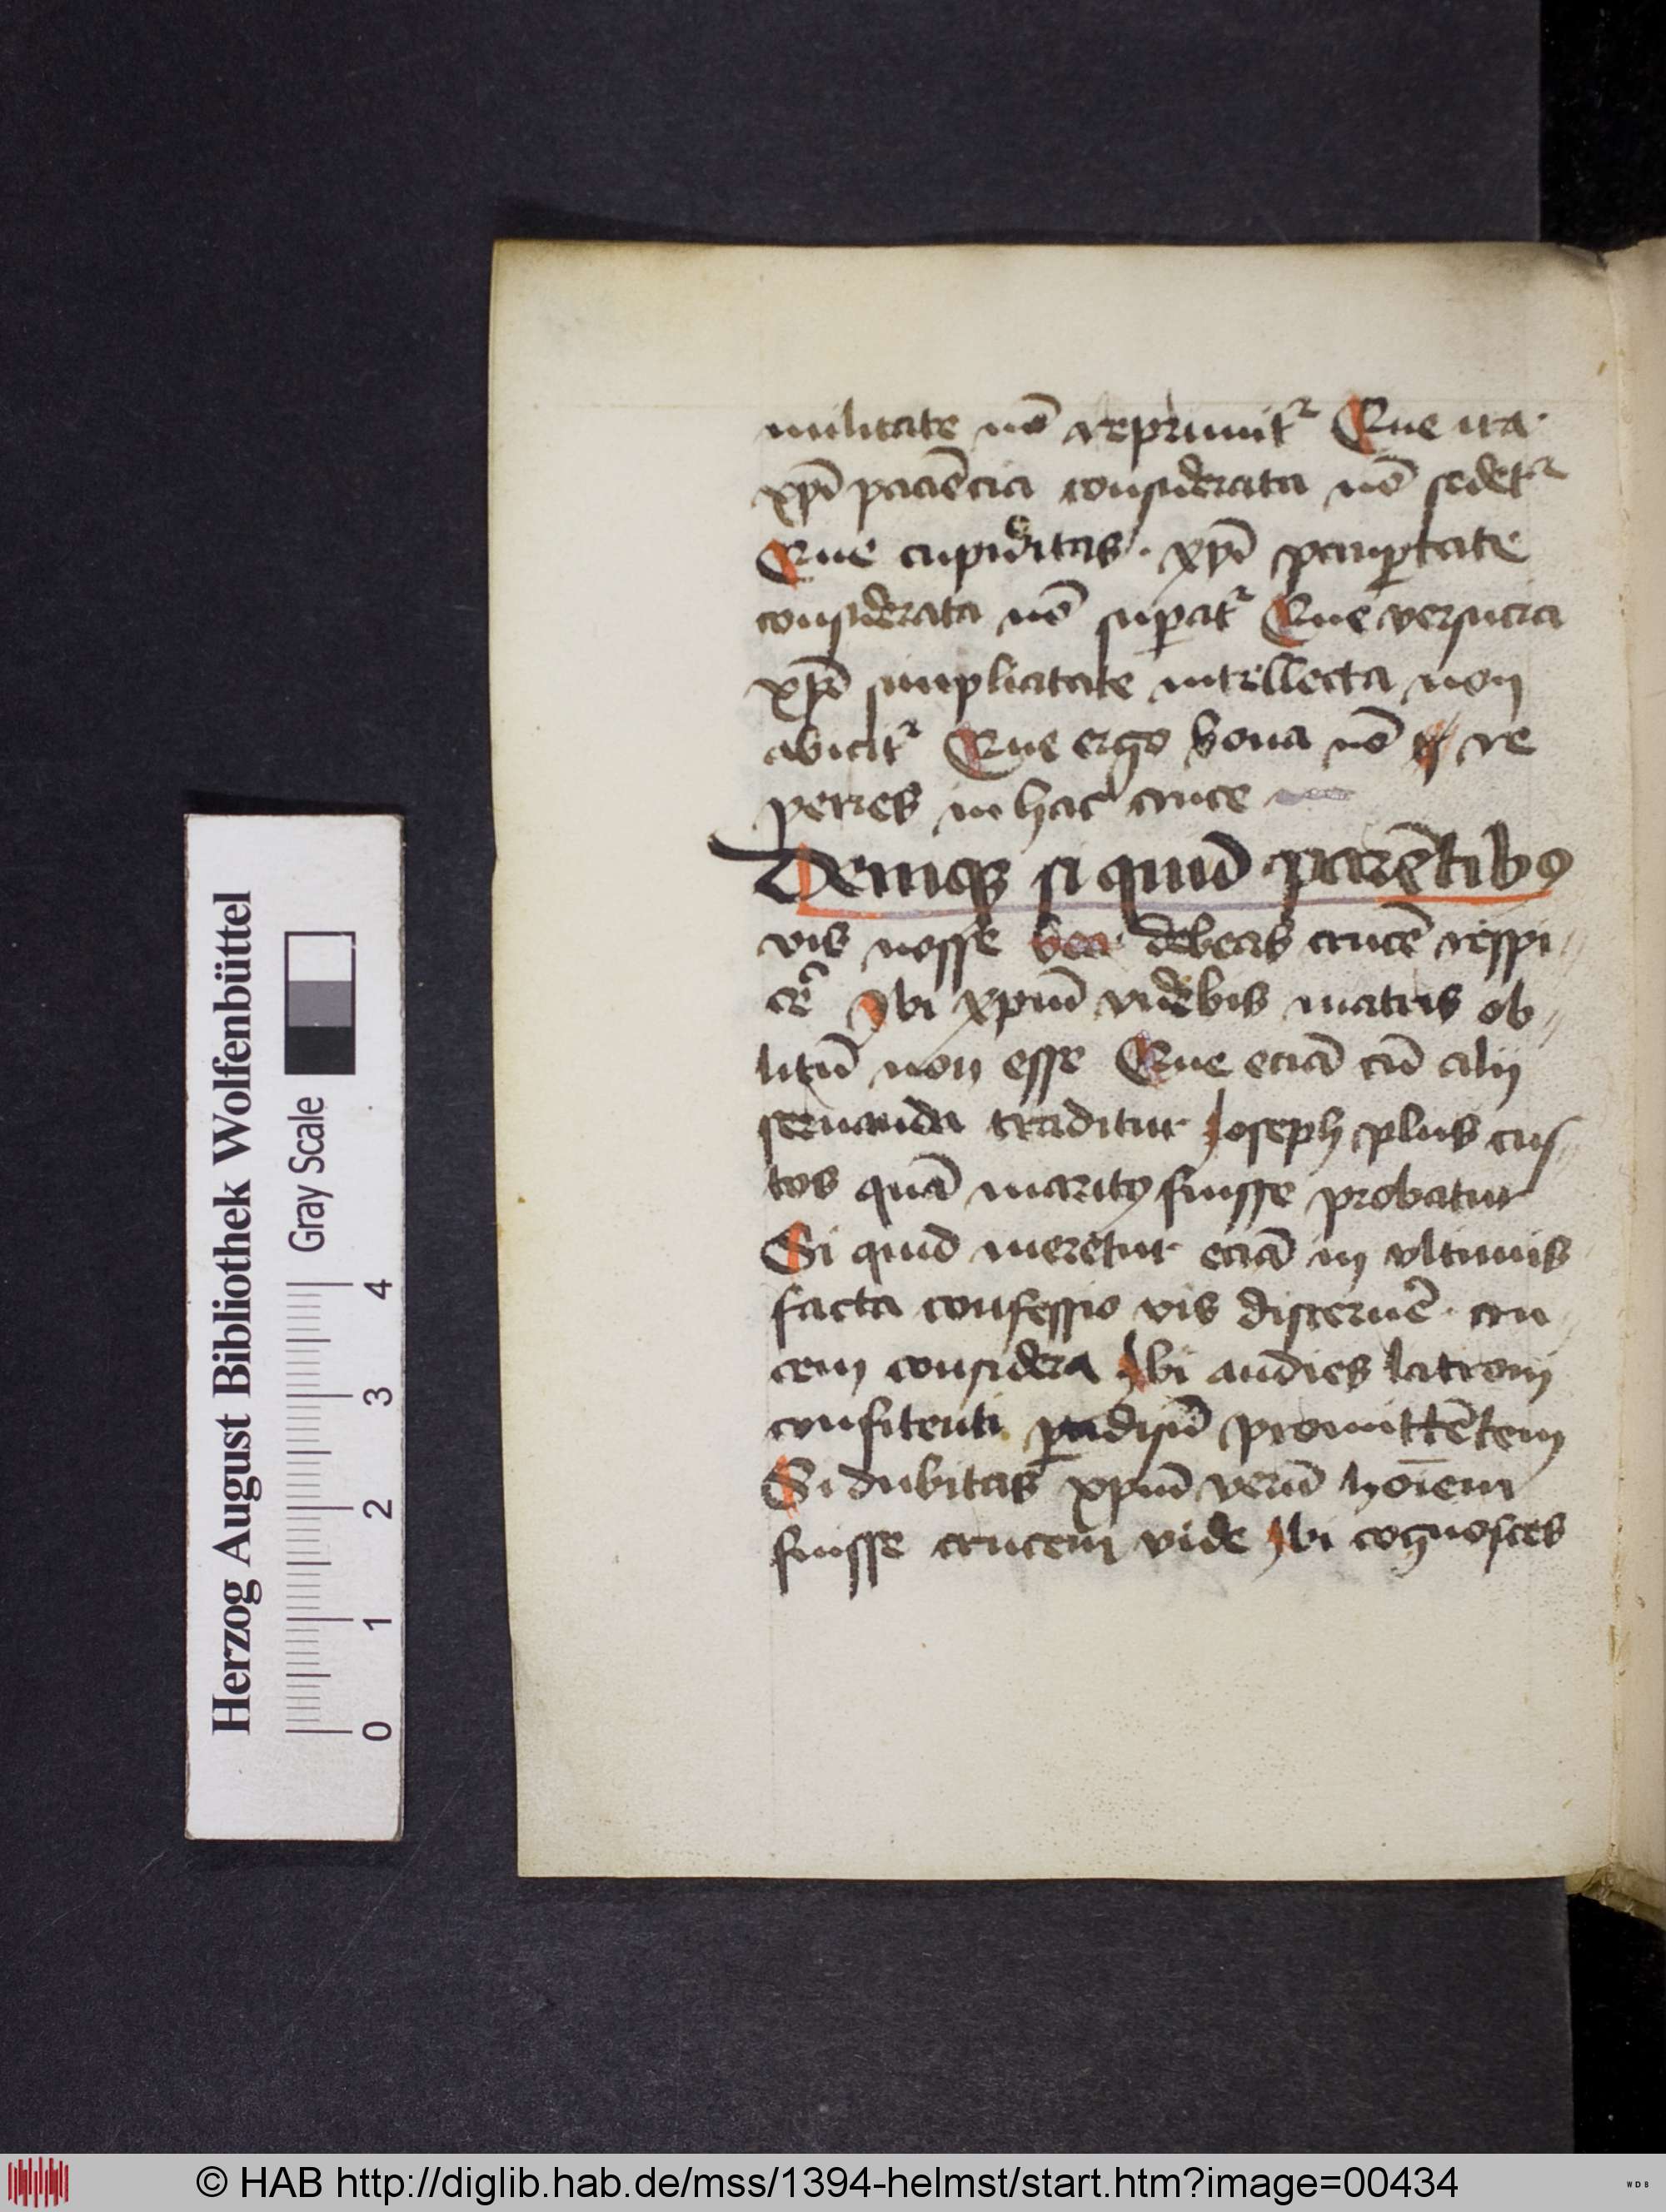 militate nō reprimit᷑ Que ira
xp̄i paciēcia considerata nō sedet᷑
Que cupiditas . xp̄i paup̱tate
considerata nō sup̱at᷑ Que versucia
xp̄i simplicitate intellecta non
abicit᷑ Que ergo bona nō re
peries in hac cruce
Deniqꝫ si quid parētibꝰ
vis nosse debeas crucē respi//
cē Ibi xp̄m videbis matris ob//
litū non esse Que eciā cū alij
seruanda traditur Joseph plus cus//
tos quā maritꝰ fuisse probatur
Si quid meretur eciā in vltimis
facta confessio vis discernē . cru
cem considera Ibi audies latroni
confitenti p̱adisū promittētem
Si dubitas xp̄m verū hoīem
fuisse crucem vide Ibi cognosces
Herzog August Bibliothek Wolfenbüttel
Gray Scale
0 1 2 3 4
© HAB http://diglib.hab.de/mss/1394-helmst/start.htm?image=00434
WDB